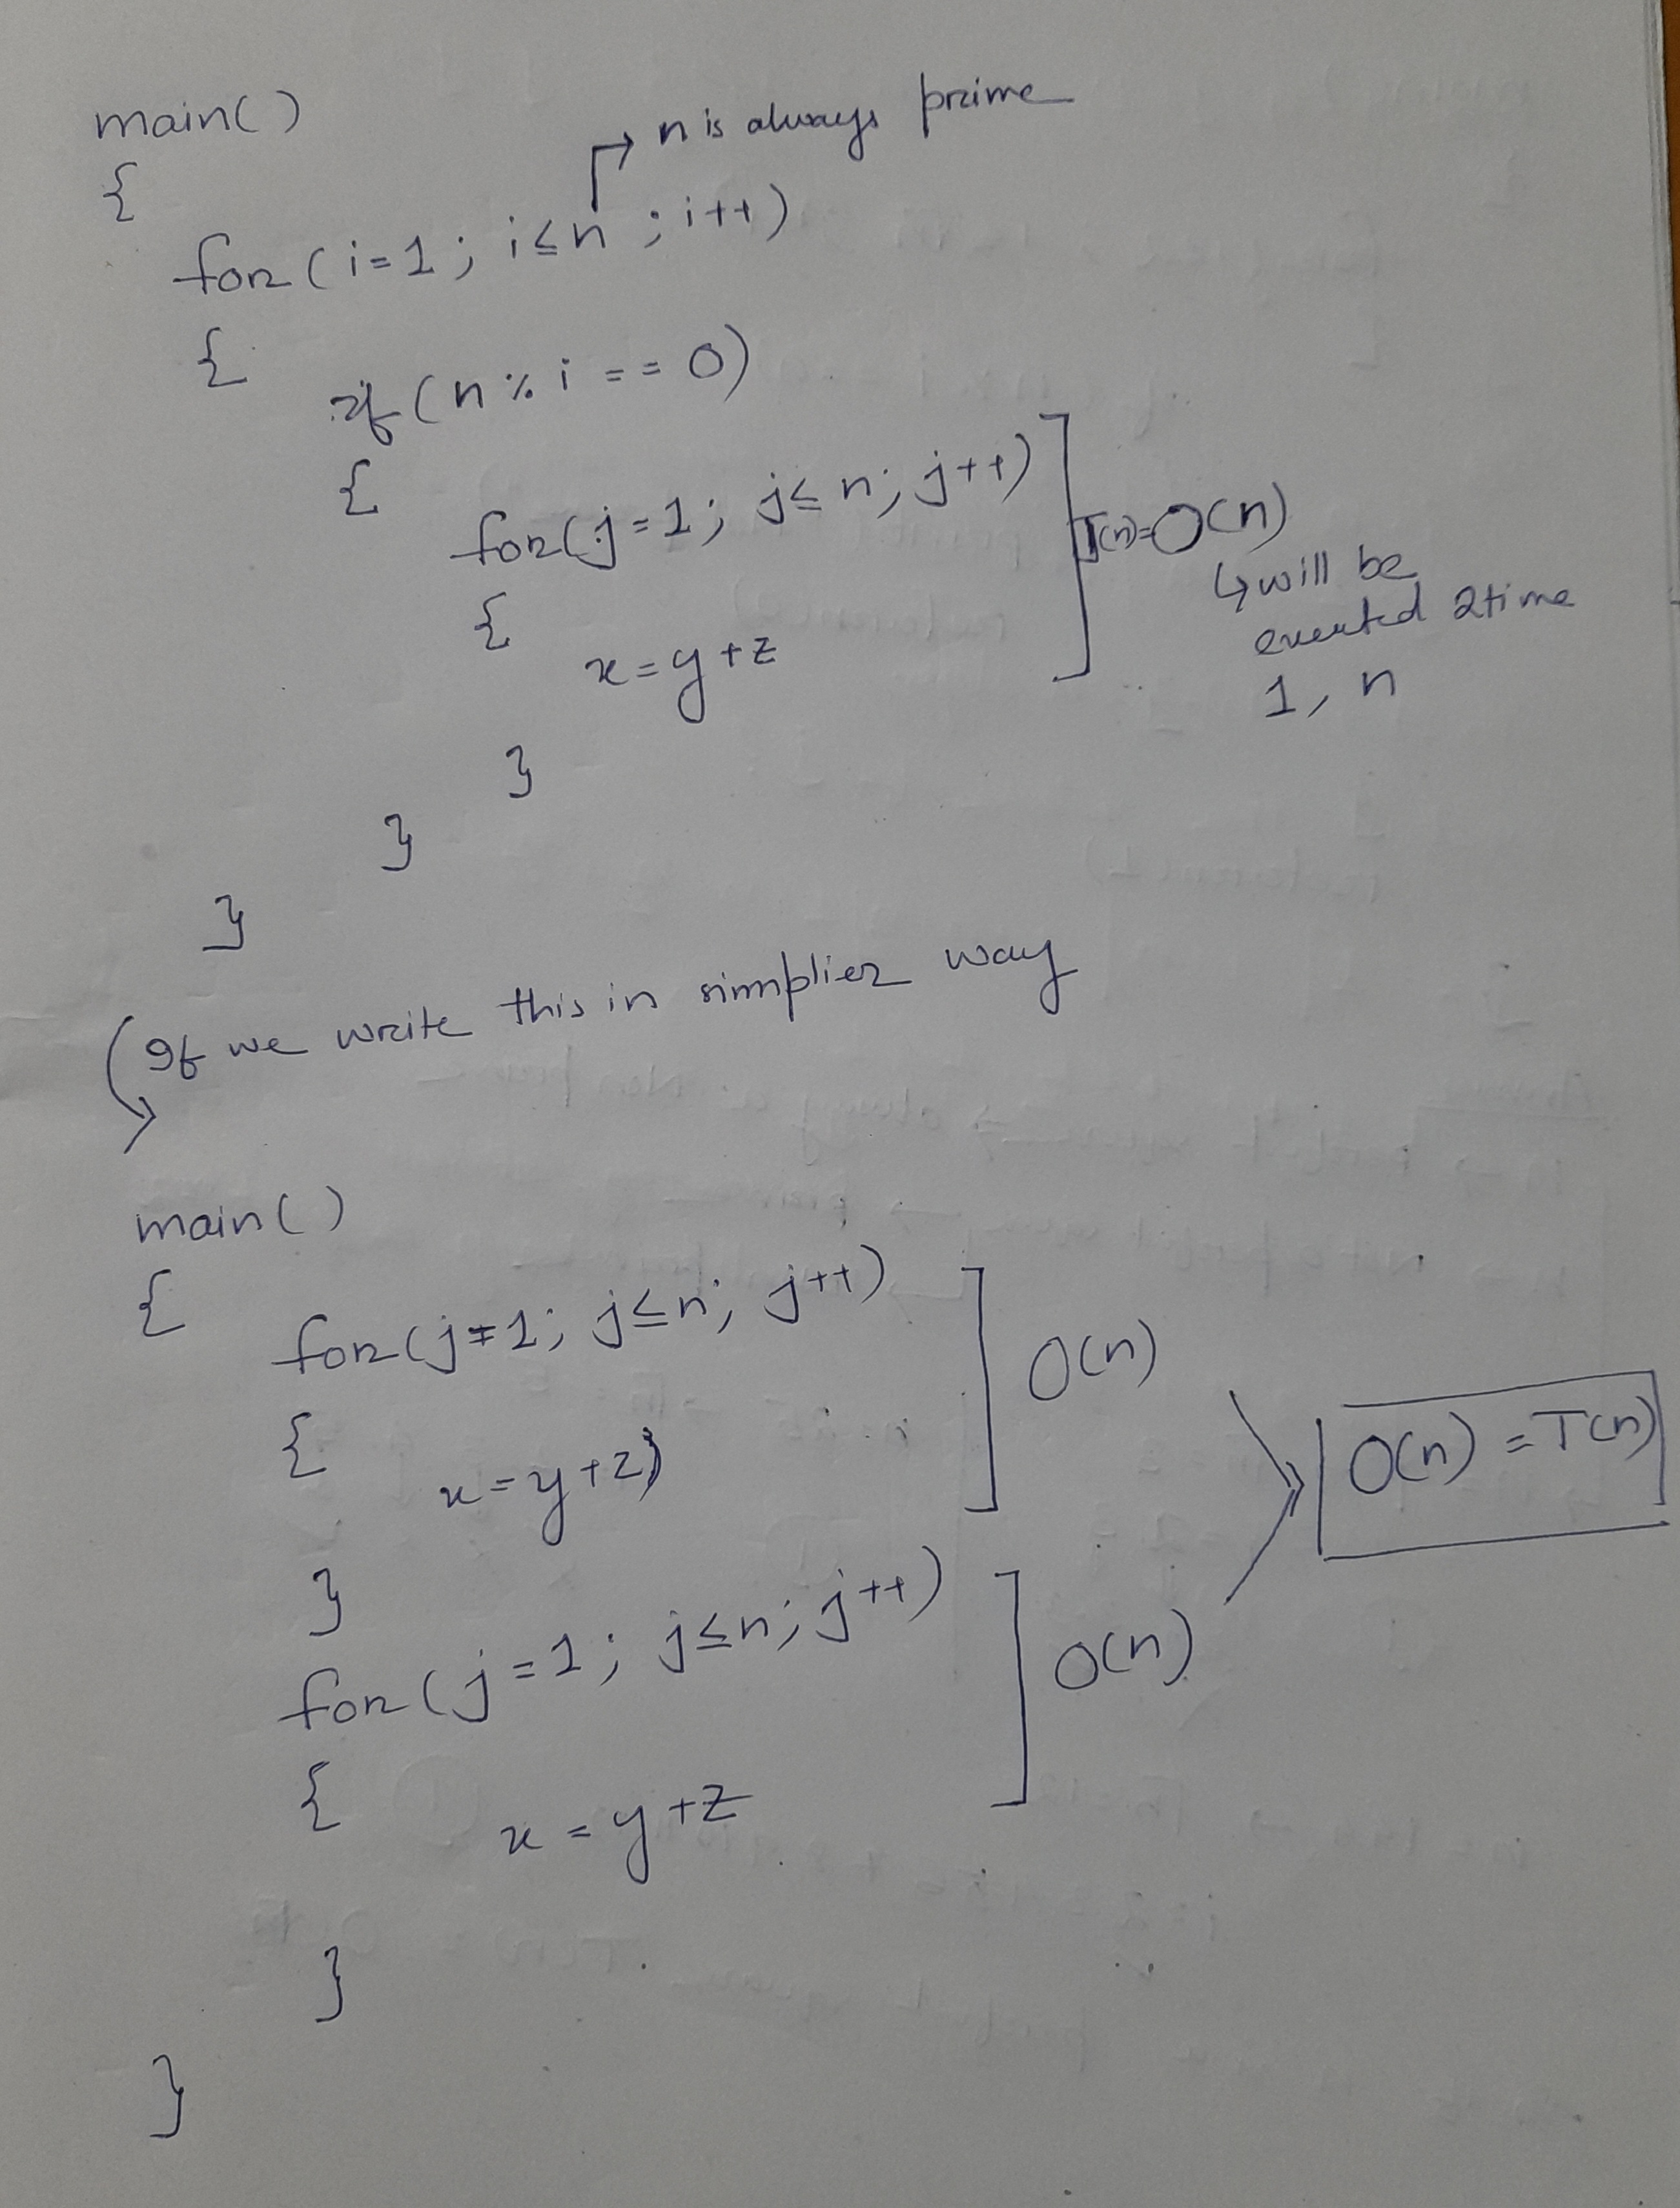 main()
n is always prime
{
for (i=1; i≤n; i++)
{
if (n % i == 0)
{
for(j=1; j≤n; j++)
T(n)=O(n)
↳ will be
exeuted 2time
1, n
{
x=y+z
}
}
}
If we write this in simplier way
main()
{
for(j=1; j≤n; j++)
O(n)
{
x=y+z;
}
O(n) = T(n)
for(j=1; j≤n; j++)
O(n)
{
x=y+z
}
}